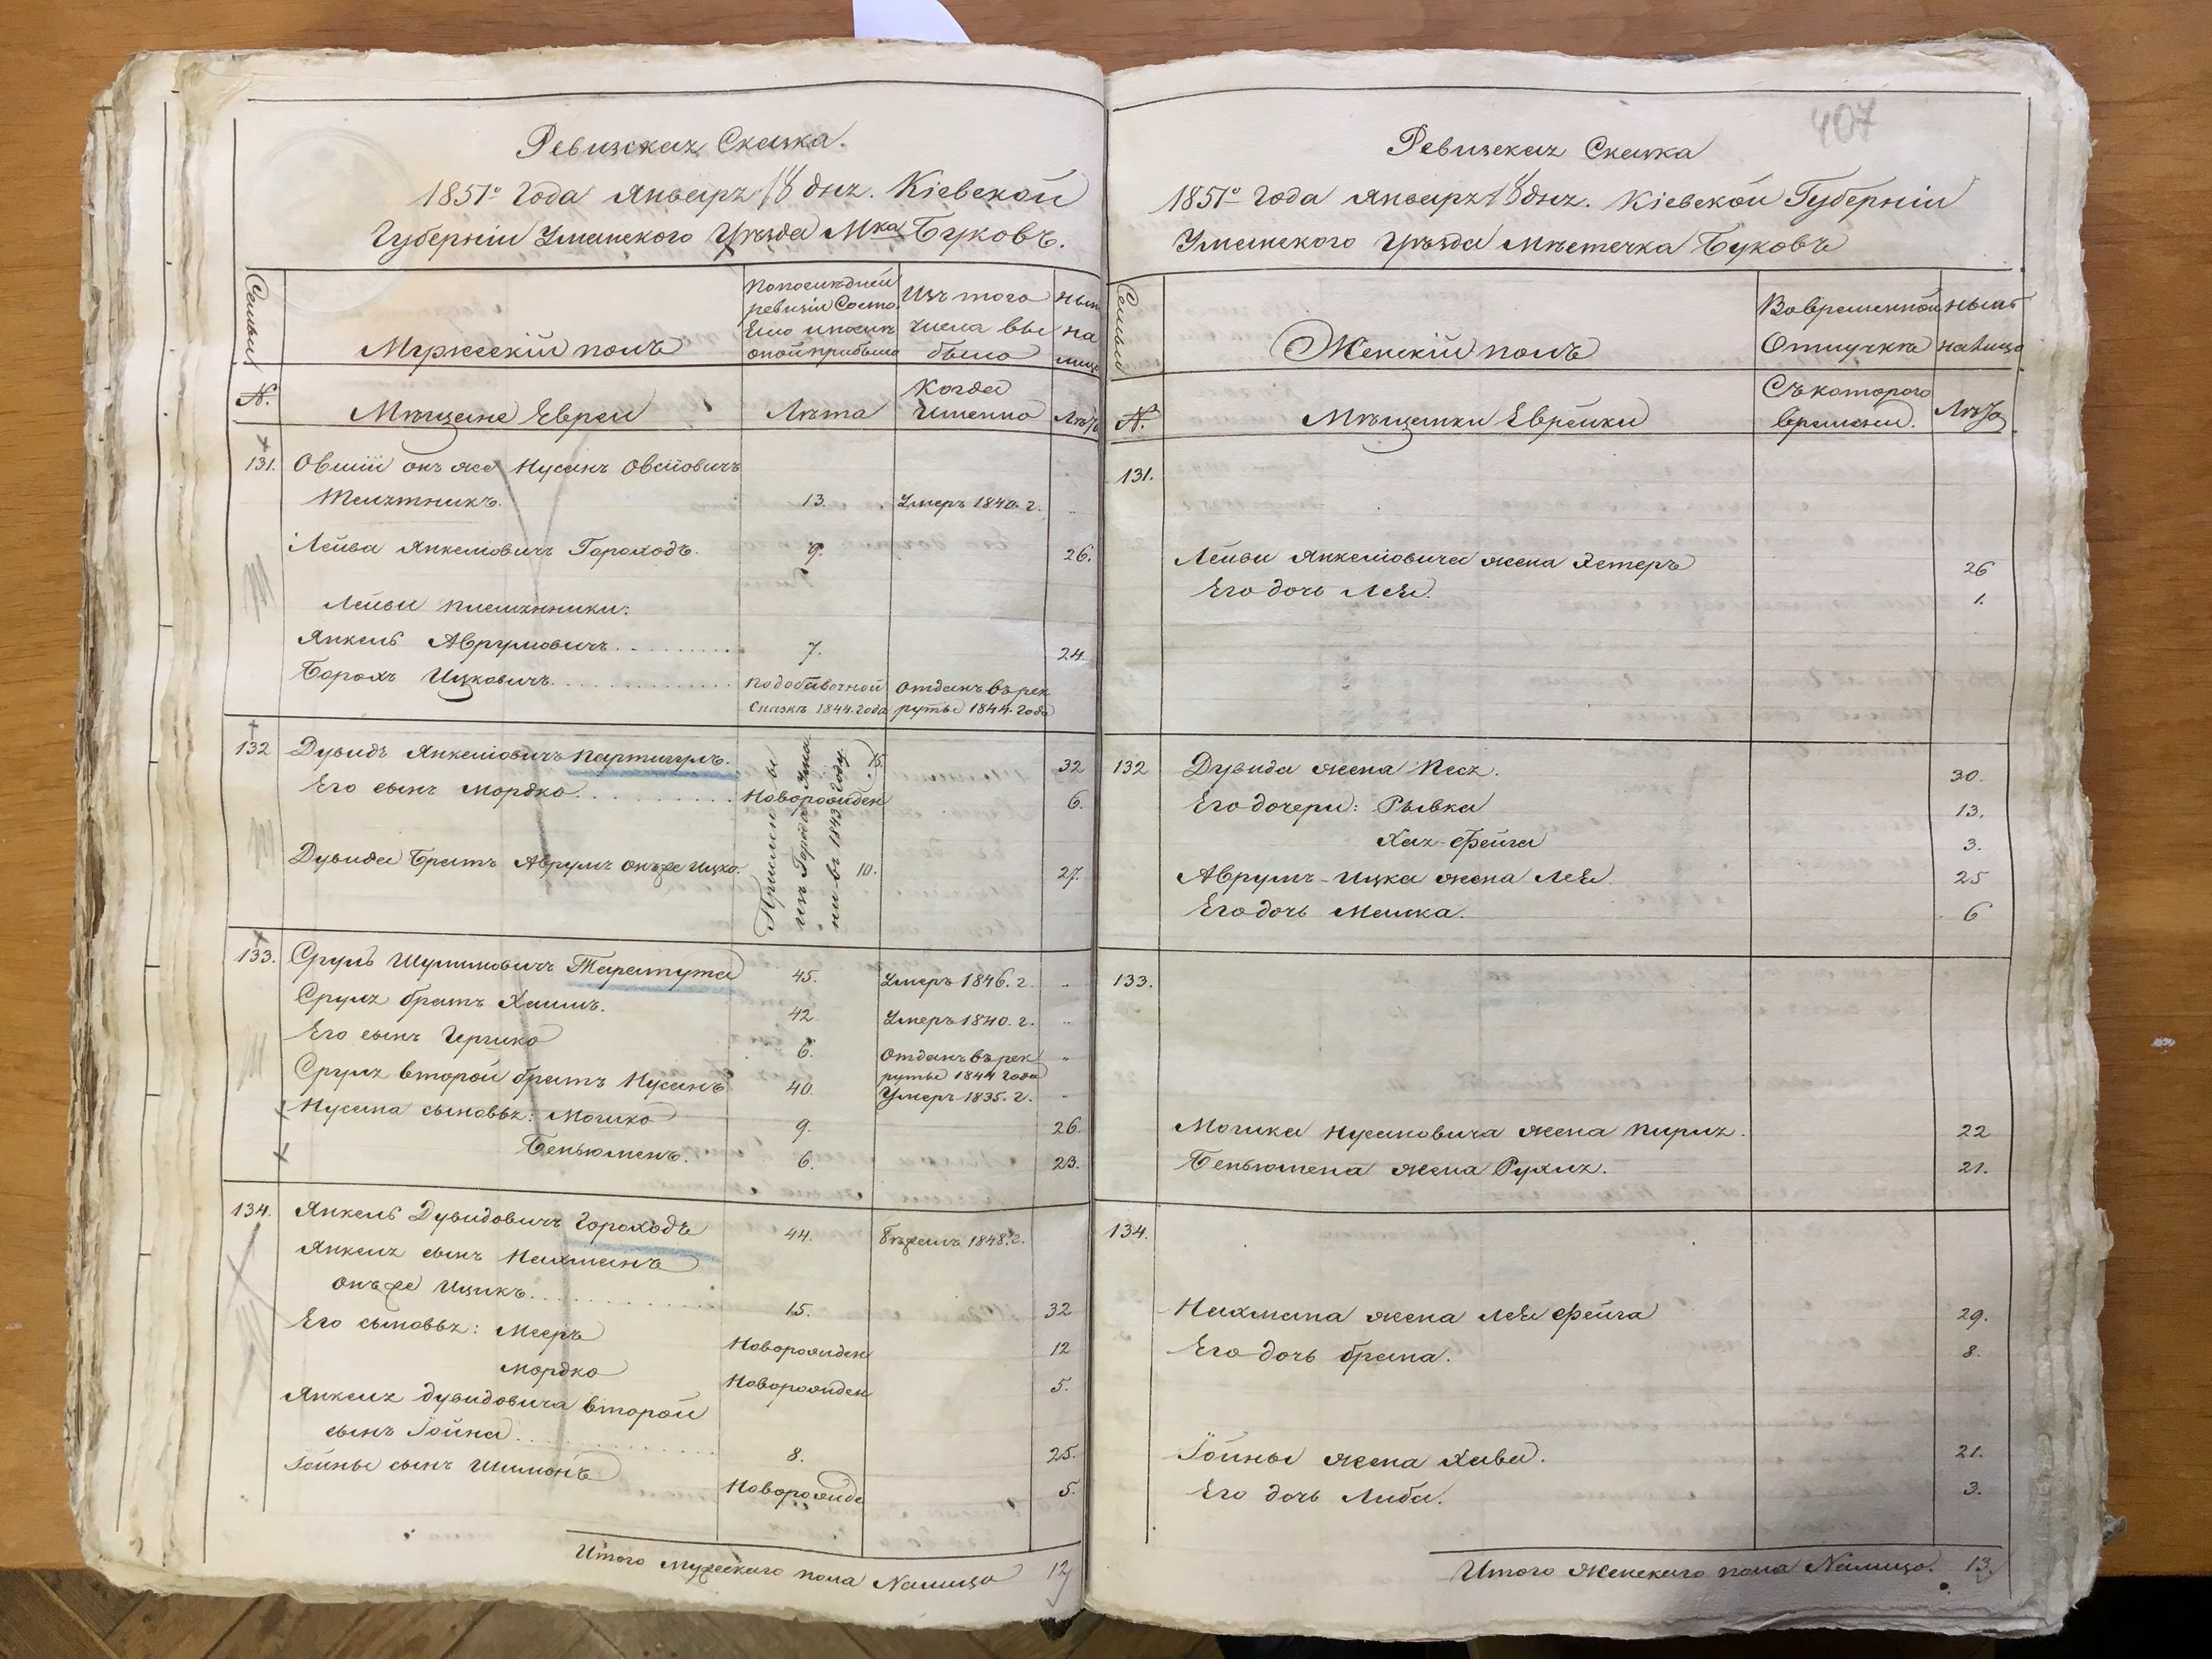 Ревизская Сказка.
1851го Года Января 18 дня. Кіевской
Губерніи Уманского Уѣзда Мка Буковъ.
Семьи
Мужескій полъ
По последней
ревизіи Состо
яло и после
оной прибыло
Изъ того
числа вы
было
ныне
на
лицо
№.
Мѣщане Евреи
Лѣта
Когда
именно
Лѣта
131.
Овшій онъ же Нусинъ Овсіовичъ
13.
Умеръ 1840. г.
Лейба Янкеліовичъ Гороходъ.
9.
26.
Лейбы племянники:
Янкель Аврумовичъ
7.
24.
Борохъ Ицковичъ
по добавочной
Сказкѣ 1844. года
отданъ въ рек
руты 1844. года
132
Дувидъ Янкеліовичъ
15.
32
Его сынъ Мордко
Новорожден
6.
Дувида Братъ Аврумъ онъ же Ицко.
10.
27.
Причислены
изъ Города Ума
ни въ 1843 году
133.
Сруль Шулимовичъ Таратута
45.
Умеръ 1846. г.
Сруля братъ Хаимъ.
42.
Умеръ 1840. г.
Его сынъ Гершко
6.
отданъ въ рек
руты 1844 года
Сруля второй братъ Нусинъ
40.
Умеръ 1835. г.
Нусина сыновья: Мошко
9.
26.
Беньюменъ.
6.
23.
134.
Янкель Дувидовичъ Гороходъ
44.
Бѣжалъ 1848. г.
Янкеля сынъ Нахманъ
онъ же Ицикъ
15.
32
Его сыновья: Мееръ
Новорожден
12
Мордко
Новорожден
5.
Янкеля Дувидовича второй
сынъ Іойна
8.
25.
Іойны сынъ Шимонъ
Новорожде
5.
Итого мужескаго пола Налицо
12
407
Ревизская Сказка
1851го Года Января 18 дня. Кіевской Губерніи
Уманского Уѣзда Мѣстечка Буковъ
Семьи
Женскій полъ
Во временной
Отлучкѣ
ныне
на лицо
№.
Мѣщанки Еврейки
Съ которого
времени.
Лѣта
131.
Лейбы Янкеліовича жена Эстеръ
26
Его дочь Лея.
1.
132
Дувида жена Песя.
30.
Его дочери: Рывка
13.
Хая-Фейга
3.
Аврумъ-Ицка жена Лея
25
Его дочь Малка.
6
133.
Мошка Нусиновича жена Пирля.
22
Беньюмена жена Рухля.
21.
134.
Нахмана жена Лея Фейга
29.
Его дочь брана.
8.
Іойны жена Хава.
21.
Его дочь Либа.
3.
Итого Женскаго пола Налицо.
13.